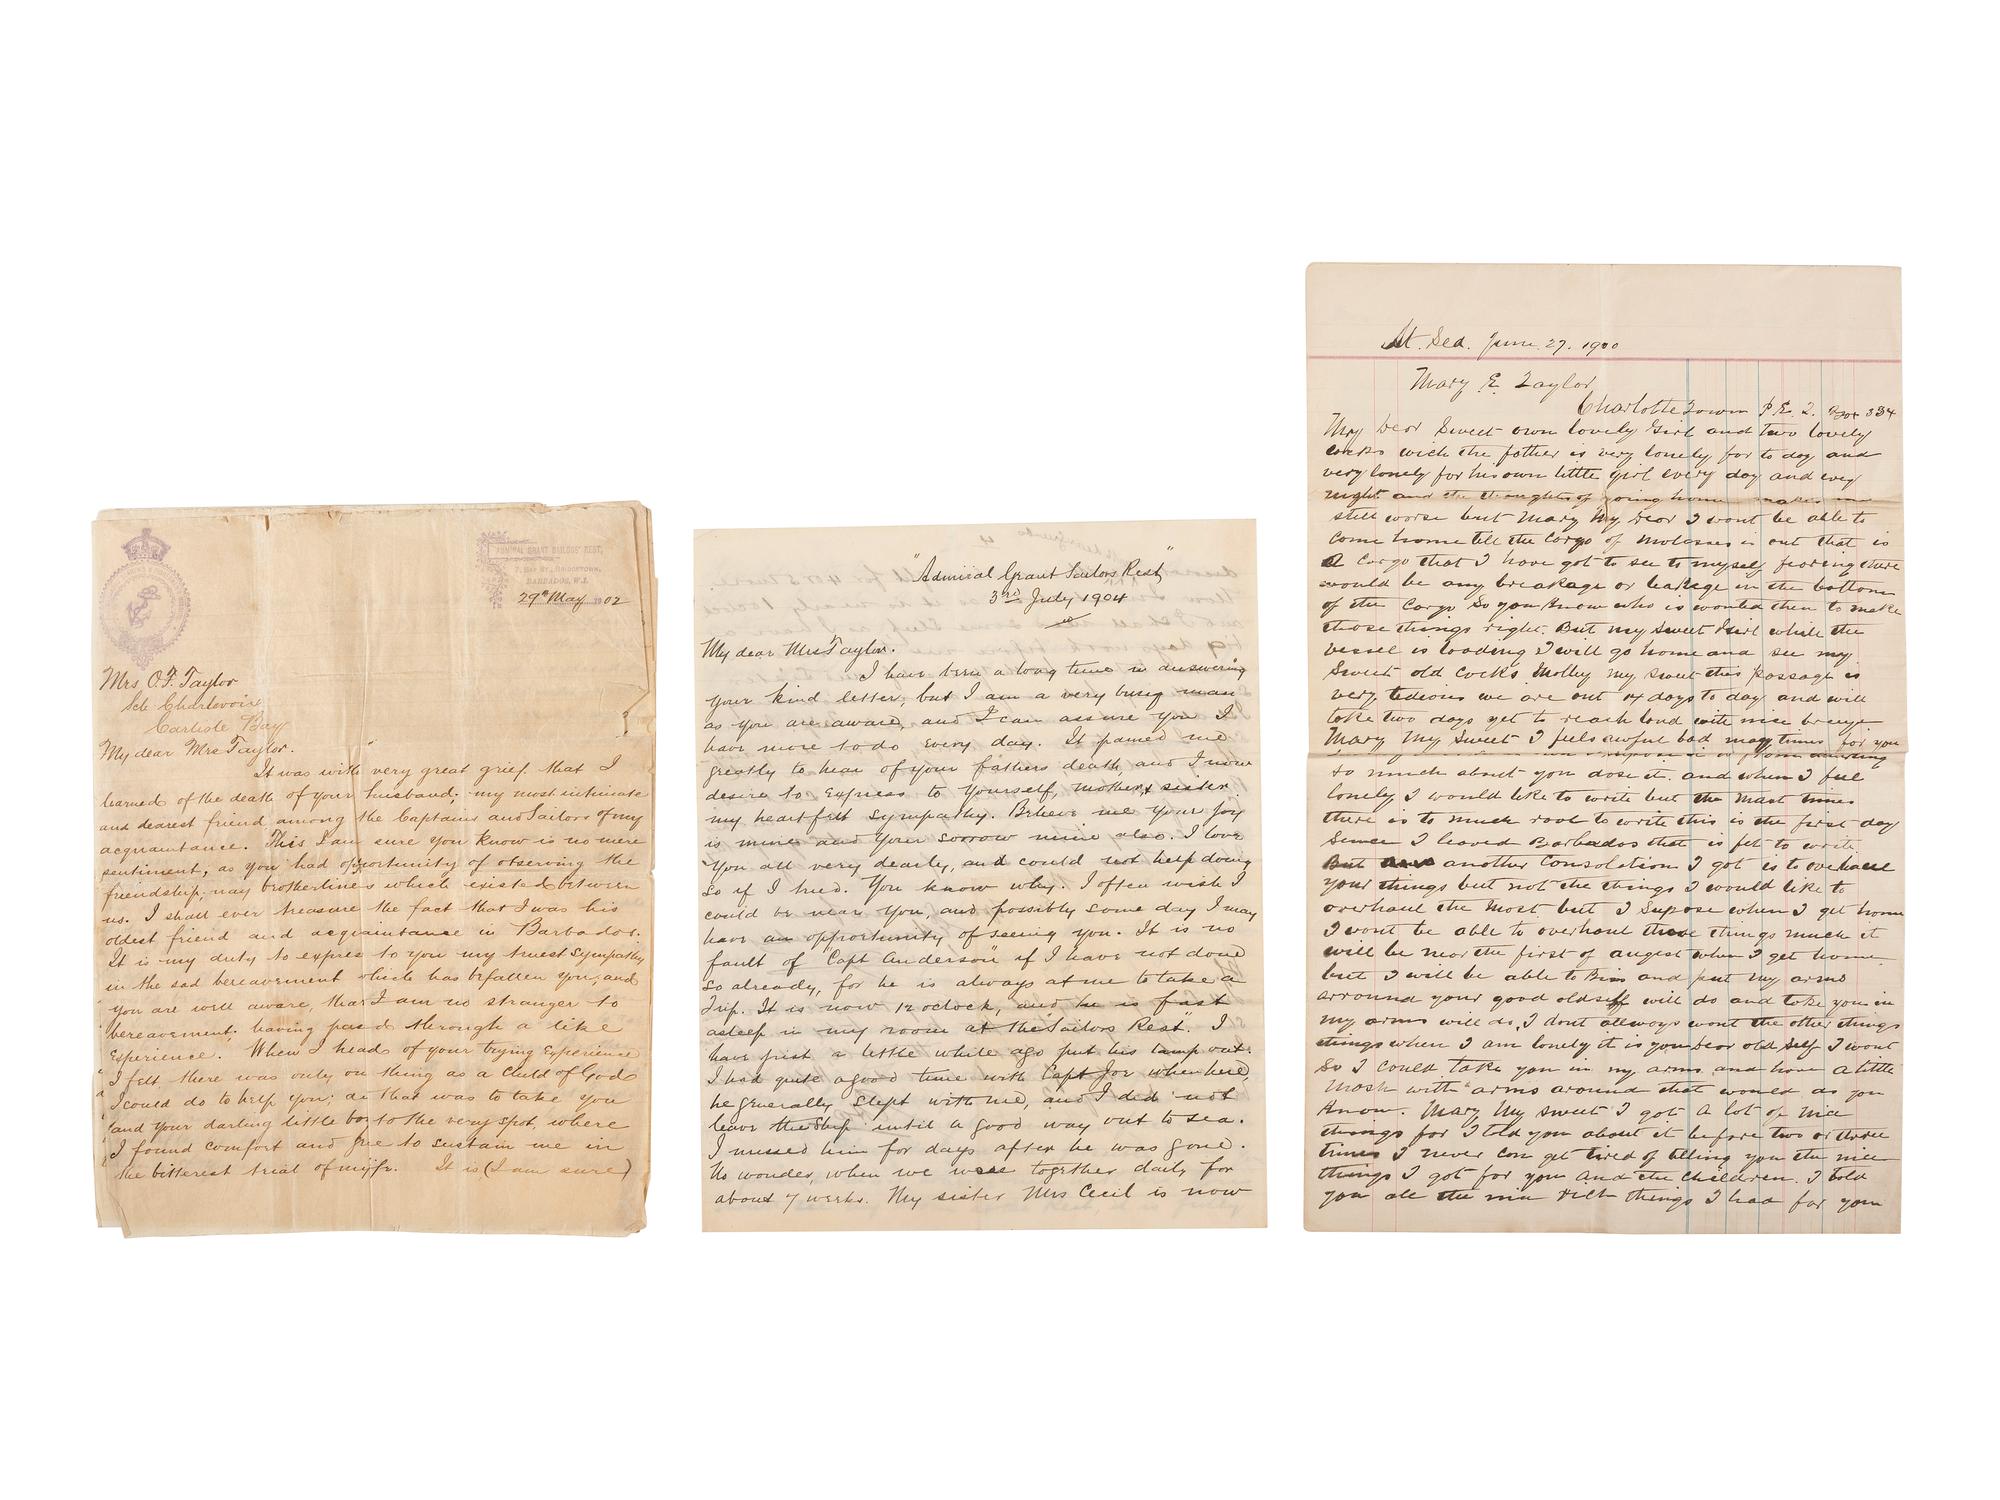 ADMIRAL GRANT SAILORS' REST,
7, BAY ST., BRIDGETOWN,
BARBADOS, W.I.
29th May 1902
Mrs O.F. Taylor
Sch Charlevoix
Carlisle Bay
My dear Mrs Taylor.
It was with very great grief that I
learned of the death of your husband; my most intimate
and dearest friend among the Captains and Sailors of my
acquaintance. This I am sure you know is no mere
sentiment, as you had opportunity of observing the
friendship, nay brotherliness which existed between
us. I shall ever treasure the fact that I was his
oldest friend and acquaintance in Barbados.
It is my duty to express to you my truest sympathy
in the sad bereavement which has befallen you, and
you are well aware, that I am no stranger to
bereavement; having passed through a like
experience. When I heard of your trying experience
I felt there was only on thing as a Child of God
I could do to help you; & that was to take you
and your darling little boy to the very spot, where
I found comfort and to sustain me in
the bitterest trial of my life. It is (I am sure)
"Admiral Grant Sailors Rest"
3rd July 1904
My dear Mrs Taylor.
I have been a long time in answering
your kind letter, but I am a very busy man
as you are aware, and I can assure you I
have more to do every day. It pained me
greatly to hear of your fathers death, and I now
desire to express to yourself, mother & sister
my heartfelt sympathy. Believe me your joy
is mine and your sorrow mine also. I love
you all very dearly, and could not help doing
so if I tried. You know why. I often wish I
could be near you, and possibly some day I may
have an opportunity of seeing you. It is no
fault of "Capt Anderson" if I have not done
so already, for he is always at me to take a
trip. It is now 12 oclock, and he is fast
asleep in my room at the "Sailors Rest". I
have just a little while ago put his lamp out.
I had quite a good time with Capt Joe when here,
he generally slept with me, and I did not
leave the ship until a good way out to sea.
I missed him for days after he was gone.
No wonder, when we were together daily for
about 7 weeks. My sister Mrs Cecil is now
At Sea. June 27. 1900
Mary E Taylor
Charlotte Town P.E.I. Box 334
My Dear Sweet own lovely Girl and two lovely
cocks wich the father is very lonely for to day and
very lonely for his own little girl every day and every
night and the thoughts of going home makes me
still worse but Mary My Dear I wont be able to
come home till the Cargo of Molasses is out that is
A Cargo that I have got to see to myself fearing there
would be any breakage or leakage in the bottom
of the Cargo So you Know who is wonted then to make
those things right. But my Sweet Girl while the
vessel is loading I will go home and see my
Sweet old Cocks Molley My Sweet this passage is
very tedious we are out 14 days to day and will
take two days yet to reach land with nise breeze
Mary My Sweet I feels awful bad many times for you
to much about you dose it. and when I feel
lonely I would like to write but the Most times
there is to much rool to write this is the first day
Since I leaved Barbados that is fit to write
But another Consolation I got is to overhaul
your things but not the things I would like to
overhaul the Most but I Supose when I get home
I wont be able to overhaul those things much it
will be near the first of augest when I get home
but I will be able to and put my arms
arround your good old self will do and take you in
my arms will do, I dont allways wont the other things
things when I am lonely it is your Dear old Self I wont
So I could take you in my arms and have a little
Mosh with arms around that would as you
Know. Mary My Sweet I got A lot of nice
things for I told you about it before two or three
times I never can get tired of telling you the nice
things I got for you and the Children. I told
you all the nice rich things I had for you